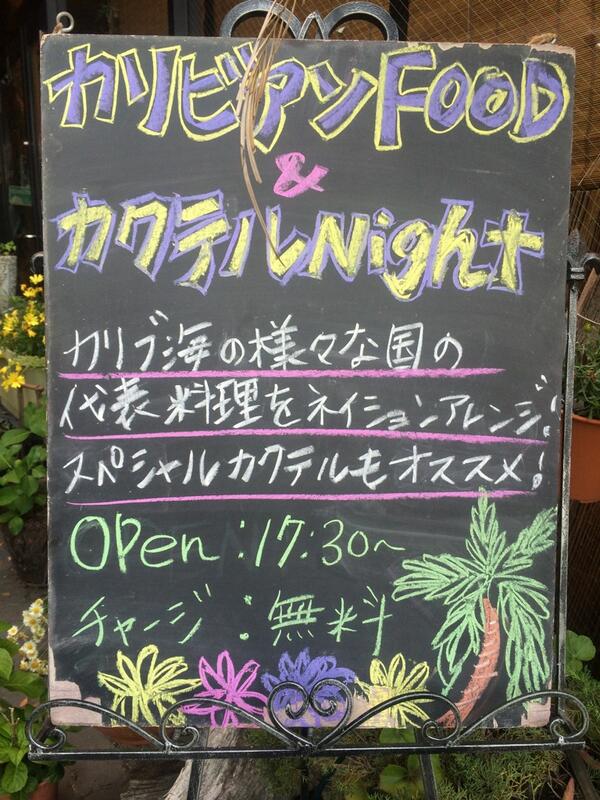 カリビアンFOOD
&
カクテルNight
カリブ海の様々な国の
代表料理をネイションアレンジ!
スペシャルカクテルもオススメ!
OPen:17:30~
チャージ:無料